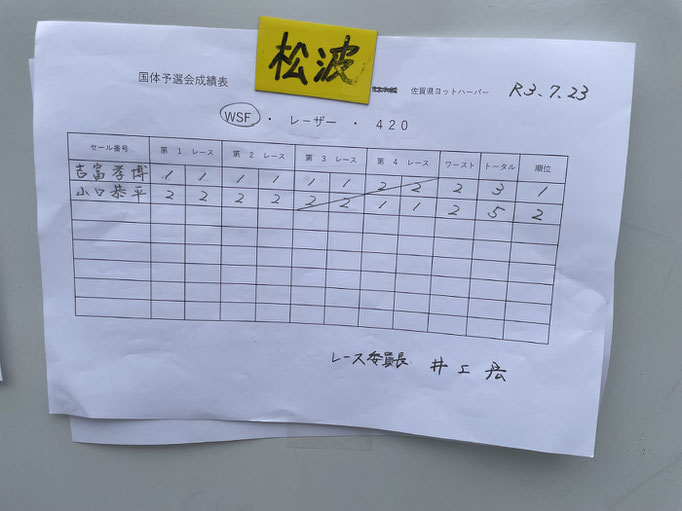 松波
国体予選会成績表
佐賀県ヨットハーバー R3.7.23
WSF ・ レーザー ・ 420
セール番号 第 1 レース 第 2 レース 第 3 レース 第 4 レース ワースト トータル 順位
吉富孝博 1 1 1 1 1 1 2 2 2 3 1
山口恭平 2 2 2 2 2 2 1 1 2 5 2
レース委員長 井上 宏